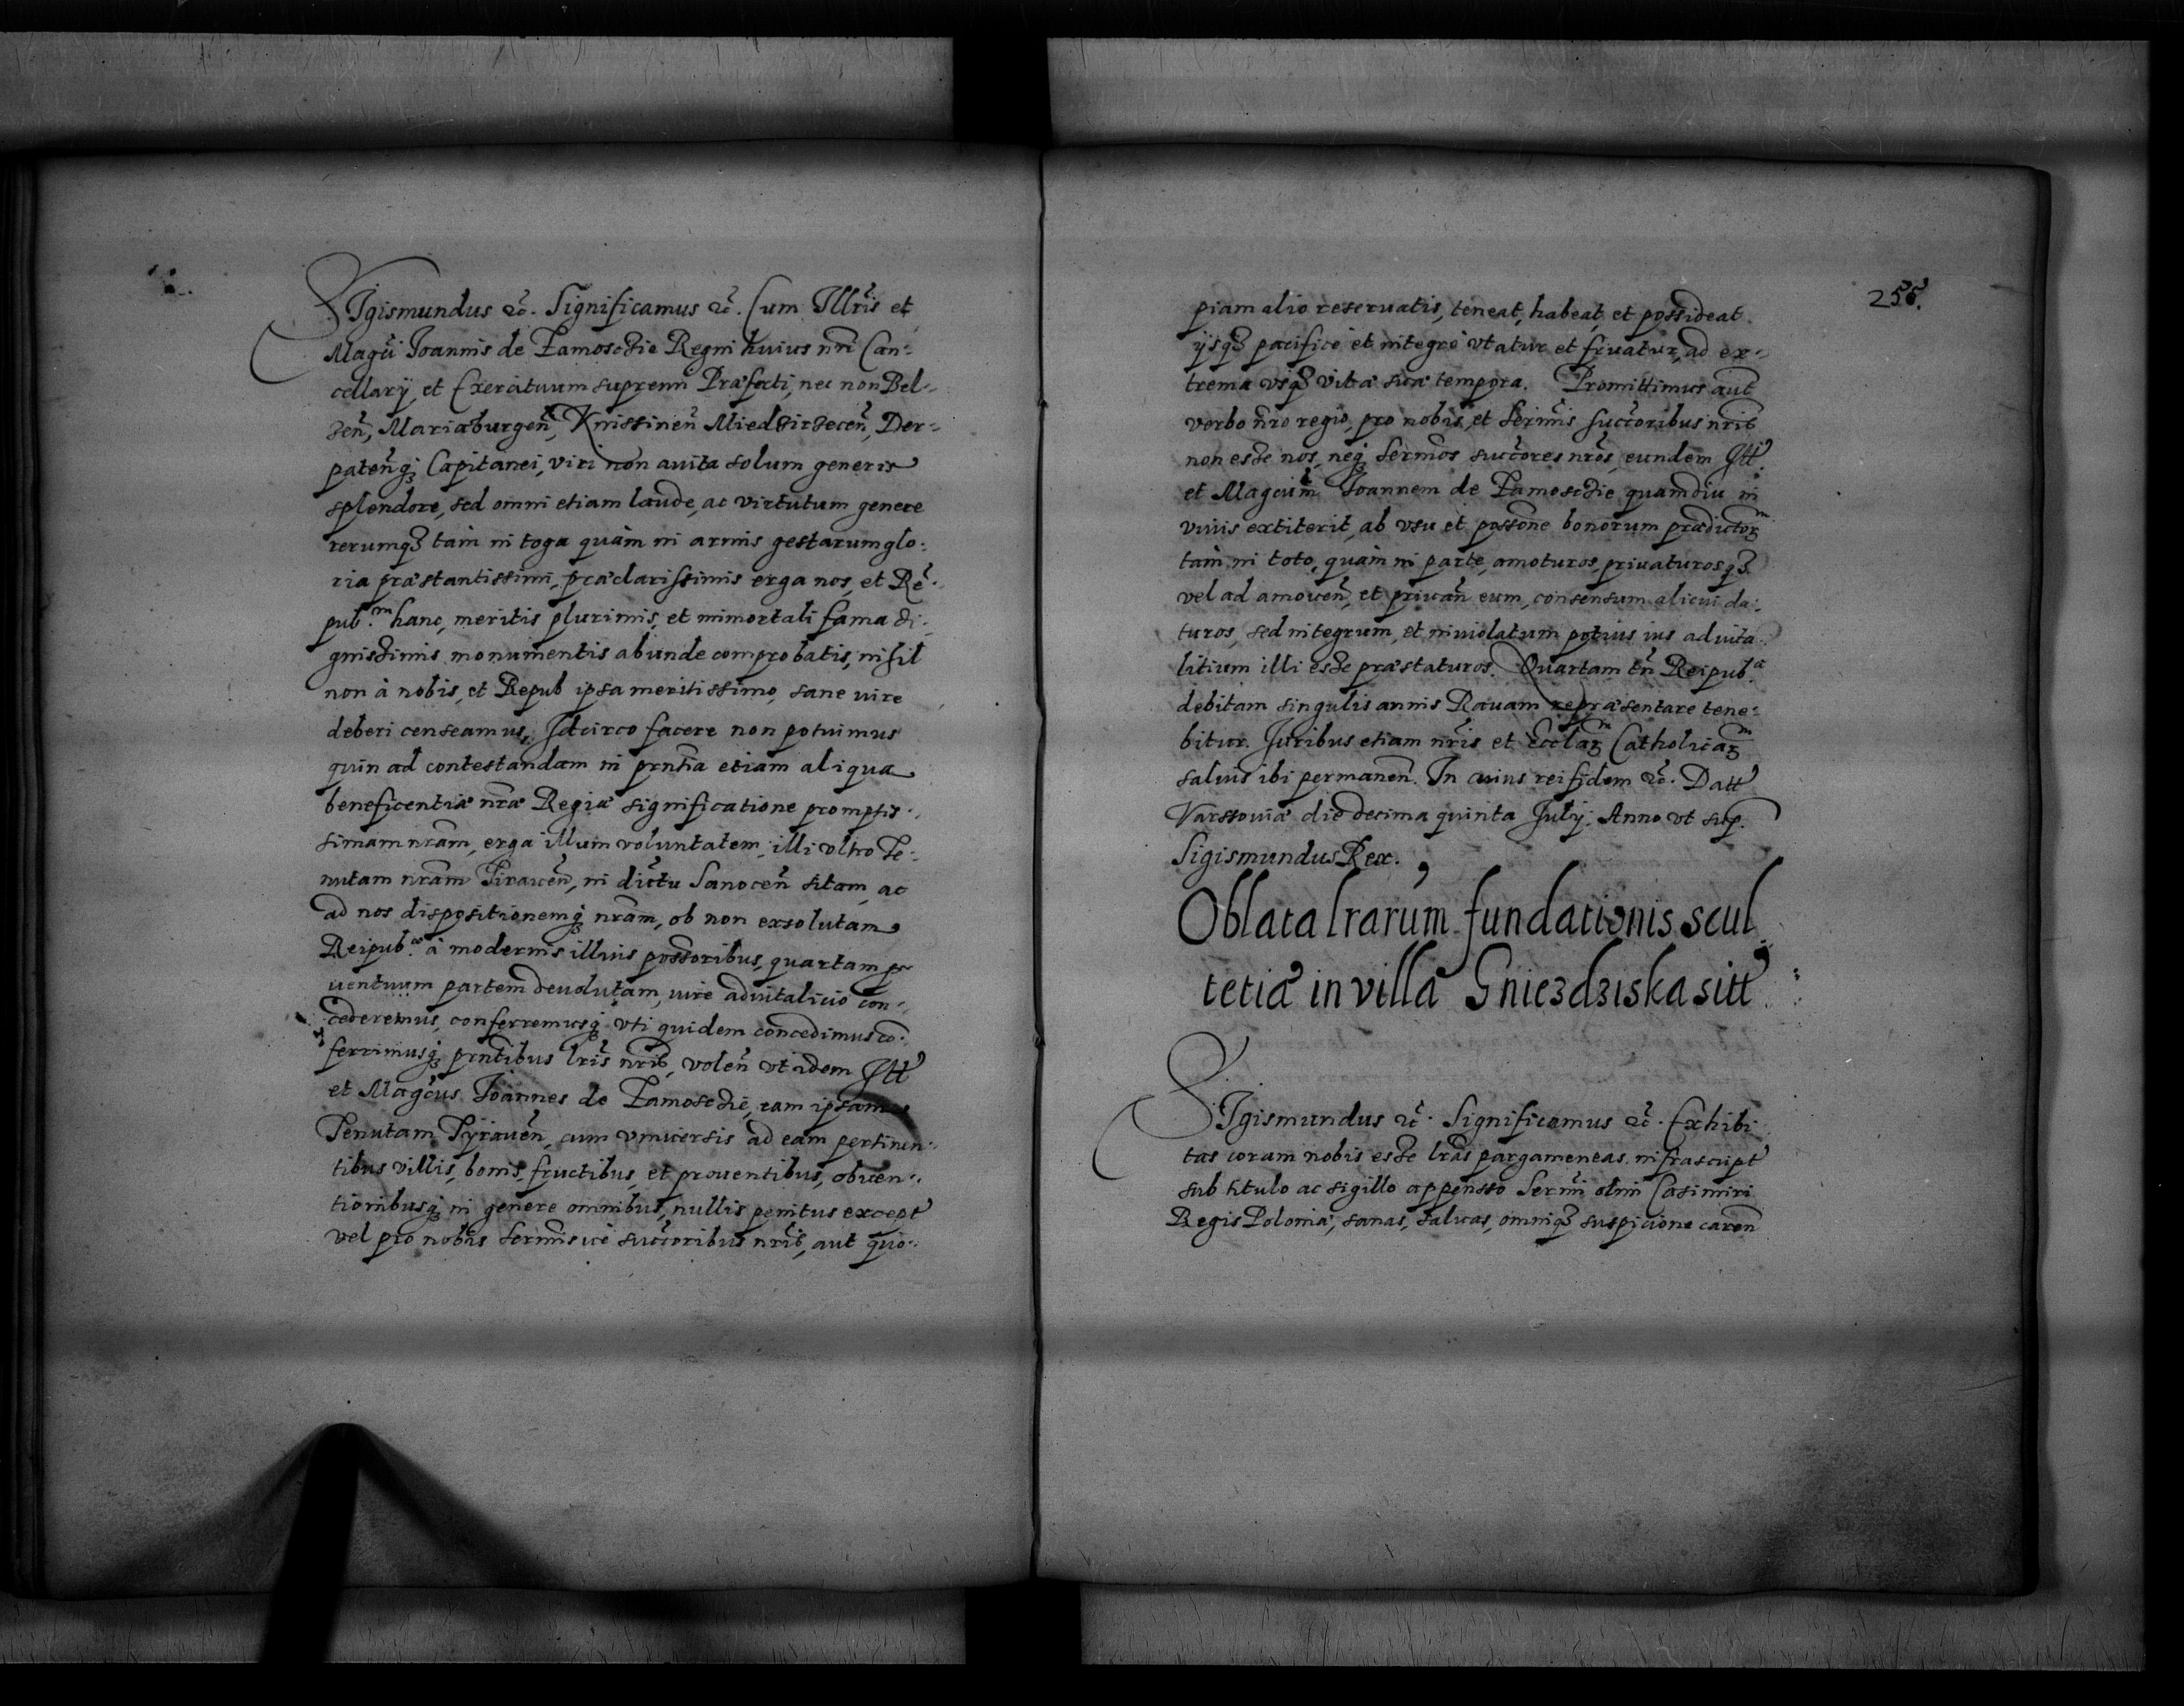 SIgismundus etc. Significamus etc. Cum Illris et
Magci Joannis de Zamosczie Regni huius nri Can-
cellarij, et Exercituum supremi Præfecti, nec non Bel-
zen, Mariæburgen, Knissinen Miedzirzecen, Der-
patenq; Capitanei, viri non auita solum generis
splendore, sed omni etiam laude, ac virtutum genere
rerumq; tam in toga quàm in armis gestarum glo-
ria præstantissimi, præclarissimis erga nos, et Re-
pub.m hanc, meritis plurimis, et immortali fama di-
gnissimis monumentis abunde comprobatis, nihil
non à nobis, et Repub ipsa meritissimo, sane iure
deberi censeamus, Idcirco facere non potuimus
quin ad contestandam in prntia etiam aliqua
beneficentiæ nræ Regiæ significatione promptis-
simam nram, erga illum voluntatem, illi vltro Te-
nutam nram Tirauen, in dictu Sanocen sitam, ac
ad nos dispositionemq; nram, ob non exsolutam
Reipub.æ à modernis illius possoribus, quartam pro
uentuum partem deuolutam, iure aduitalicio con-
cederemus, conferremusq; vti quidem concedimus co-
ferrimusq; prntibus lris nris, volen vt idem Ill
et Magcus Joannes de Zamosczie, eam ipsam
Tenutam Tyrauen, cum vniuersis ad eam pertinen-
tibus villis, bonis, fructibus, et prouentibus, obuen-
tionibusq; in genere omnibus, nullis penitus except
vel pro nobis Sermis ue succoribus nris, aut quo-
256.
piam alio reseruatis, teneat, habeat, et possideat
ijsq; pacificè et integrè vtatur et fruatur, ad ex-
trema vsq; vitæ suæ tempora. Promittimus aut
verbo nro regio, pro nobis, et Sermis succoribus nris
non esse nos, neq; Sermos succores nros, eundem Ill
et Magcum Joannem de Zamosczie quamdiu in
viuis extiterit, ab vsu et possone bonorum prædictorm
tàm in toto, quàm in parte, amoturos, priuaturosq;
vel ad amouen, et priuan eum, consensum alicui da-
turos, sed integrum, et inuiolatum potius ius aduita-
litium illi esse præstaturos. Quartam tn Reipub.æ
debitam singulis annis Rauam repræsentare tene-
bitur. Juribus etiam nris et Ecclarm Catholicarm
saluis ibi permanen. In cuius rei fidem etc. Datt
Varssouiæ die decima quinta Julij, Anno vt sup.
Sigismundus Rex.
Oblata lrarum fundationis scul
tetiæ in villa Gniezdziska sitt
SIgismundus etc. Significamus etc. Exhibi
tas coram nobis esse lras pargameneas infrascript
sub titulo ac sigillo appensso Sermi olim Casimiri
Regis Poloniæ, sanas, saluas, omniq; suspicione caren